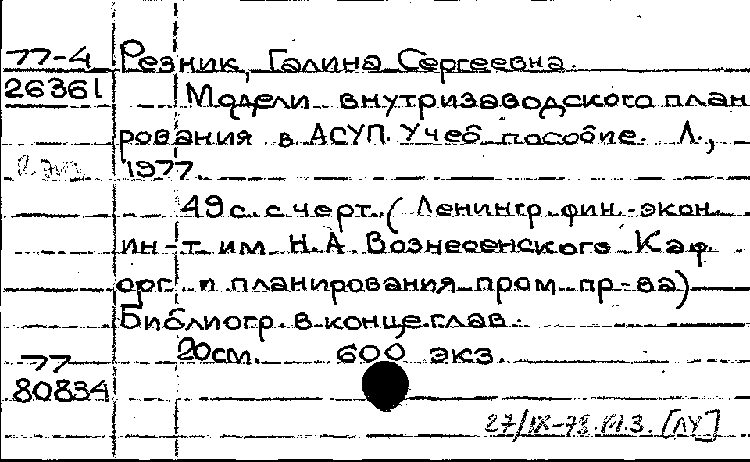 77-4 Резник, Галина Сергеевна.
26361 Модели внутризаводского план
рования в АСУП. Учеб. пособие. Л.,
1977.
49 с. с черт. (Ленингр. фин.-экон.
ин-т им. Н.А. Вознесенского. Каф.
орг. и планирования пром. пр-ва)
Библиогр. в конце глав.
77 20см. 600 экз.
80834